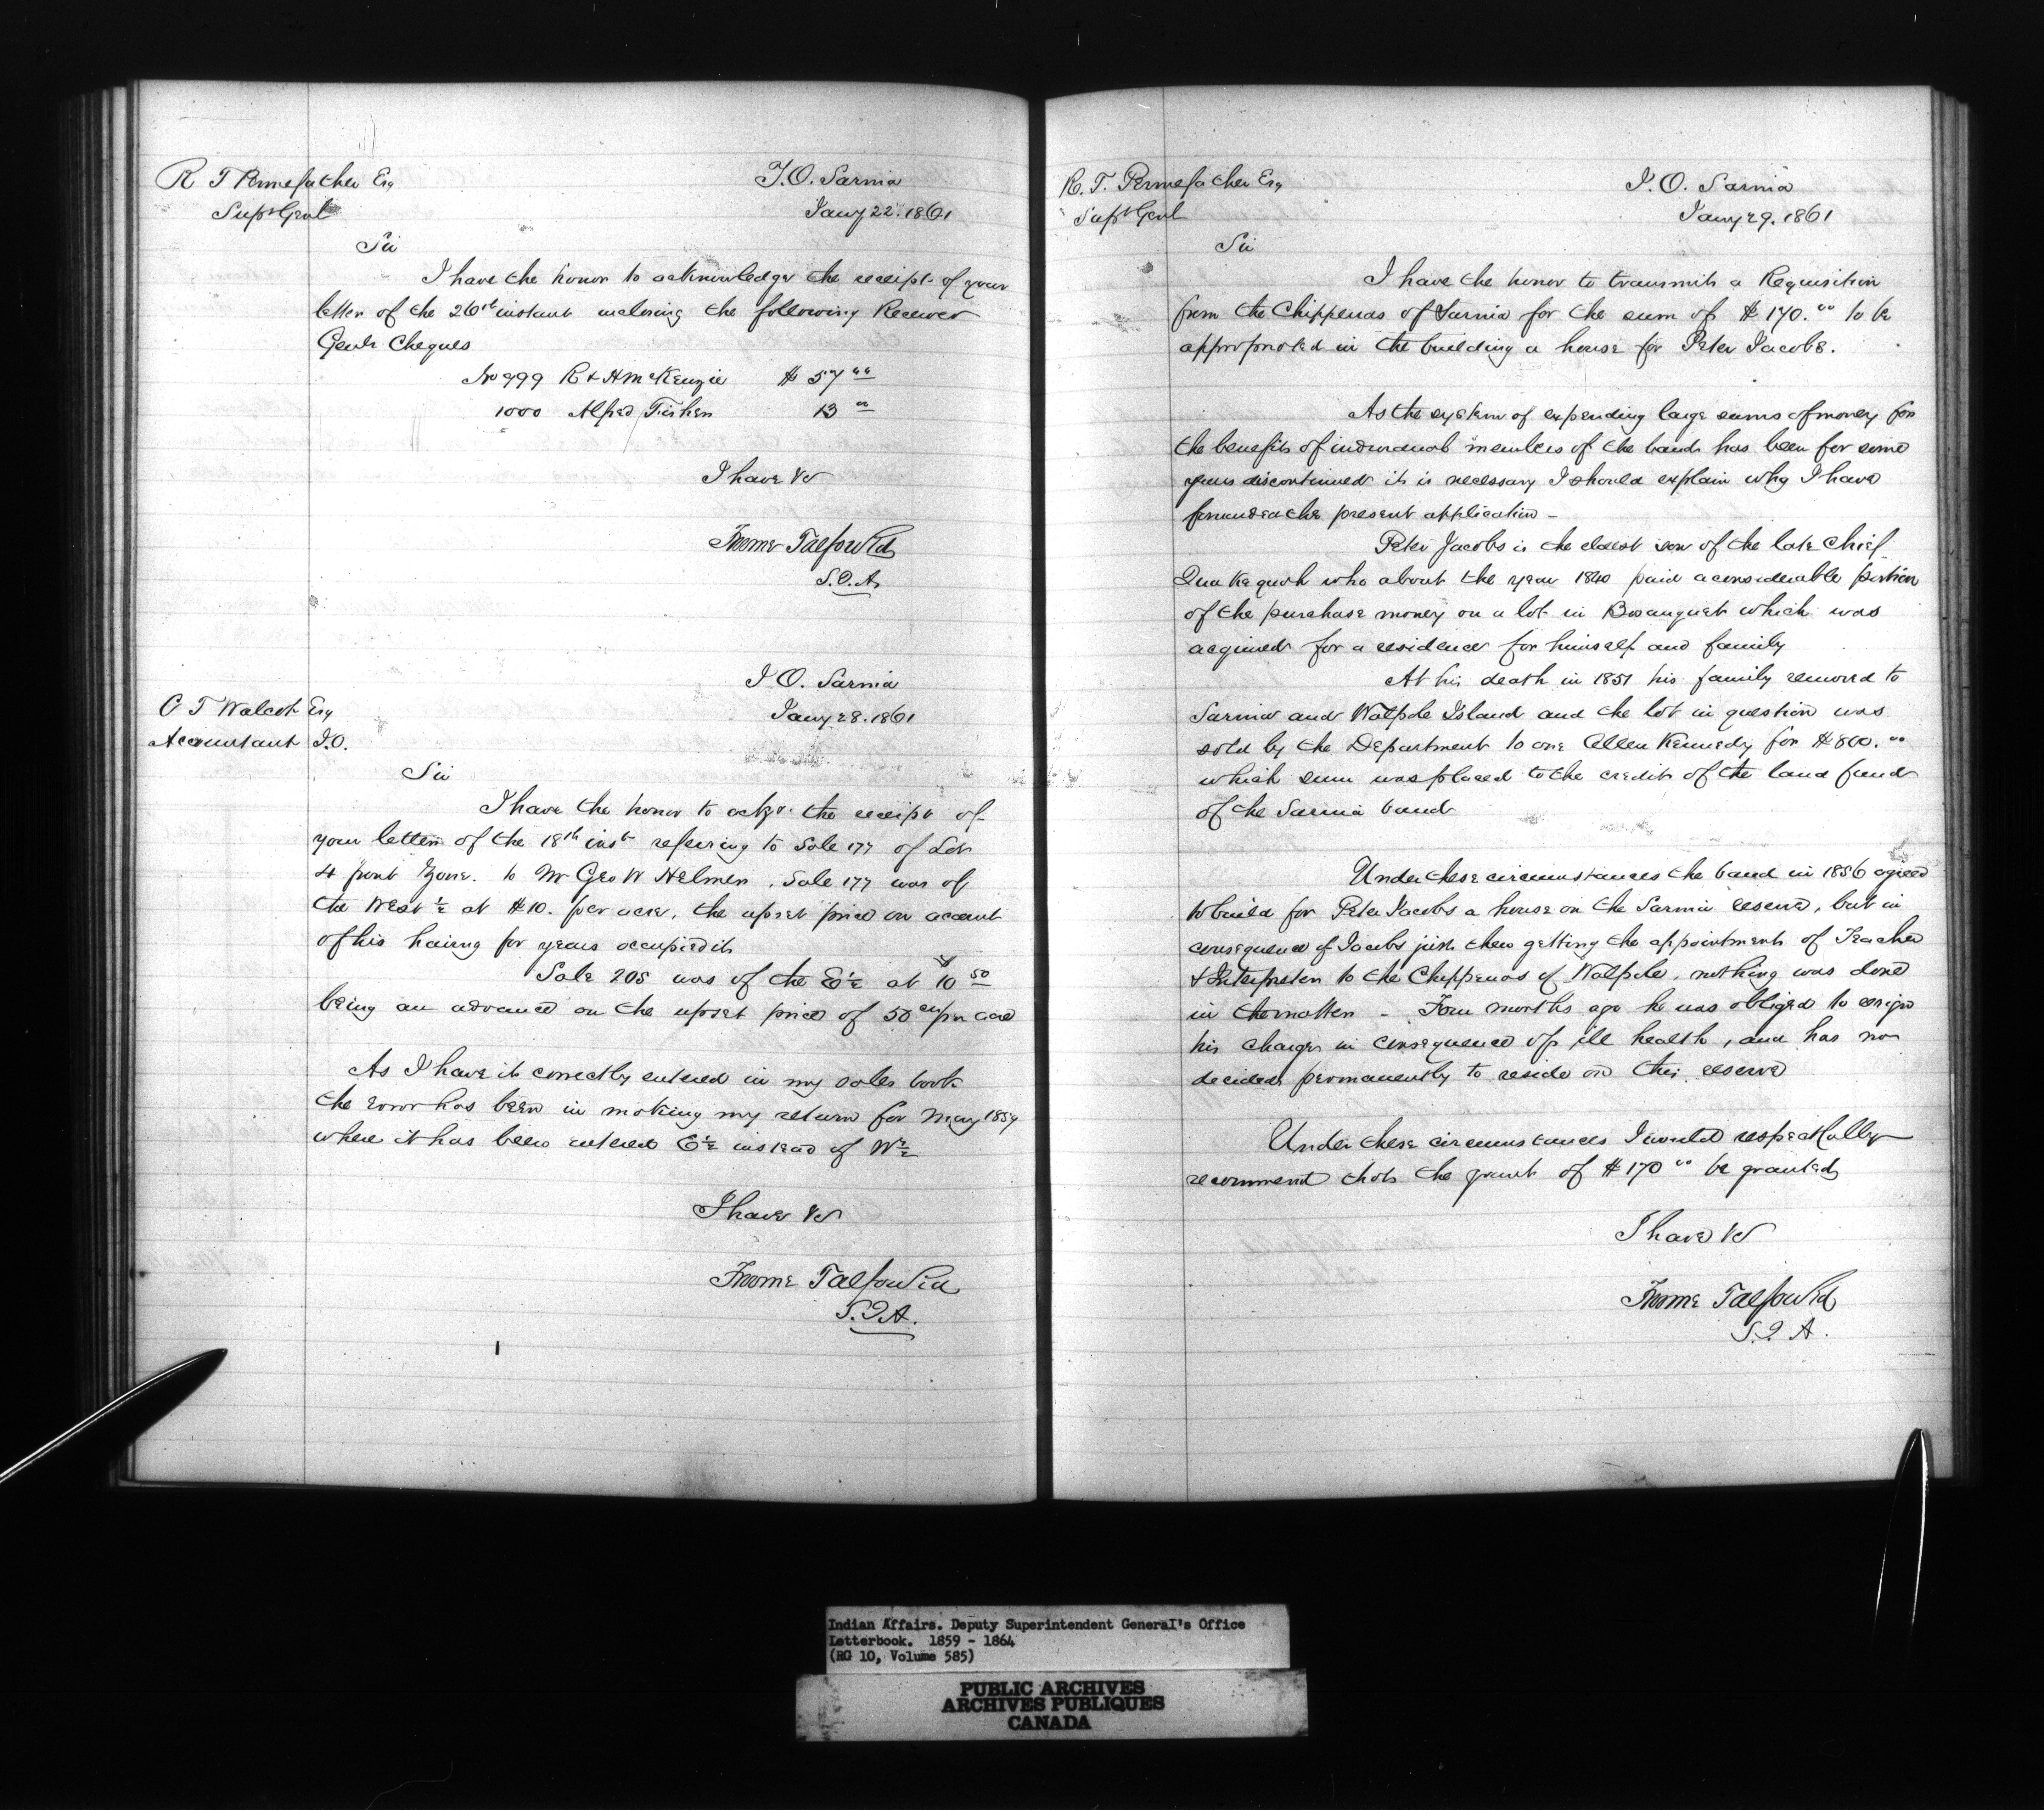 R T Pennefather Esq
Supt Genl
I.O. Sarnia
Jany 22. 1861
Sir
I have the honor to acknowledge the receipt of your
letter of the 26th instant inclosing the following Receiver
Genls Cheques
No 999 R & H McKenzie $ 57 00
1000 Alfred Fisher 13 00
I have &c
Froome Talfourd
S.I.A.
C T Walcot Esq
Accountant I.O.
I O. Sarnia
Jany 28. 1861
Sir
I have the honor to ackge. the receipt of
your letter of the 18th inst referring to Sale 177 of Lot
4 front to Mr Geo W Helmer. Sale 177 was of
the West ½ at $10. per acre, the upset price on account
of his having for years occupied it
Sale 205 was of the E½ at $10 50
being an advance on the upset price of 50 cts per acre
As I have it correctly entered in my sales book
the error has been in making my return for May 1859
where it has been entered E½ instead of W½
I have &c
Froome Talfourd
S.I.A.
R. T. Pennefather Esq
Supt Genl
I. O. Sarnia
Jany 29. 1861
Sir
I have the honor to transmit a Requisition
from the Chippewas of Sarnia for the sum of $ 170. 00 to be
appropriated in the building a house for Peter Jacobs.
As the system of expending large sums of money for
the benefit of individual members of the band has been for some
years discontinued it is necessary I should explain why I have
forwarded the present application -
Peter Jacobs is the eldest son of the late Chief
who about the year 1840 paid a considerable portion
of the purchase money on a lot in Bosanquet which was
acquired for a residence for himself and family
At his death in 1851 his family removed to
Sarnia and Walpole Island and the lot in question was
sold by the Department to one Allen Kennedy for $800. 00
which sum was placed to the credit of the land fund
of the Sarnia band
Under these circumstances the band in 1856 agreed
to build for Peter Jacobs a house on the Sarnia reserve, but in
consequence of Jacobs just then getting the appointment of Teacher
& Interpreter to the Chippewas of Walpole, nothing was done
in the matter - Four months ago he was obliged to resign
his charge in consequence of ill health, and has now
decided permanently to reside on this reserve
Under these circumstances I would respectfully
recommend that the grant of $170 00 be granted
I have &c
Froome Talfourd
S.I.A.
Indian Affairs. Deputy Superintendent General's Office
Letterbook. 1859 - 1864
(RG 10, Volume 585)
PUBLIC ARCHIVES
ARCHIVES PUBLIQUES
CANADA